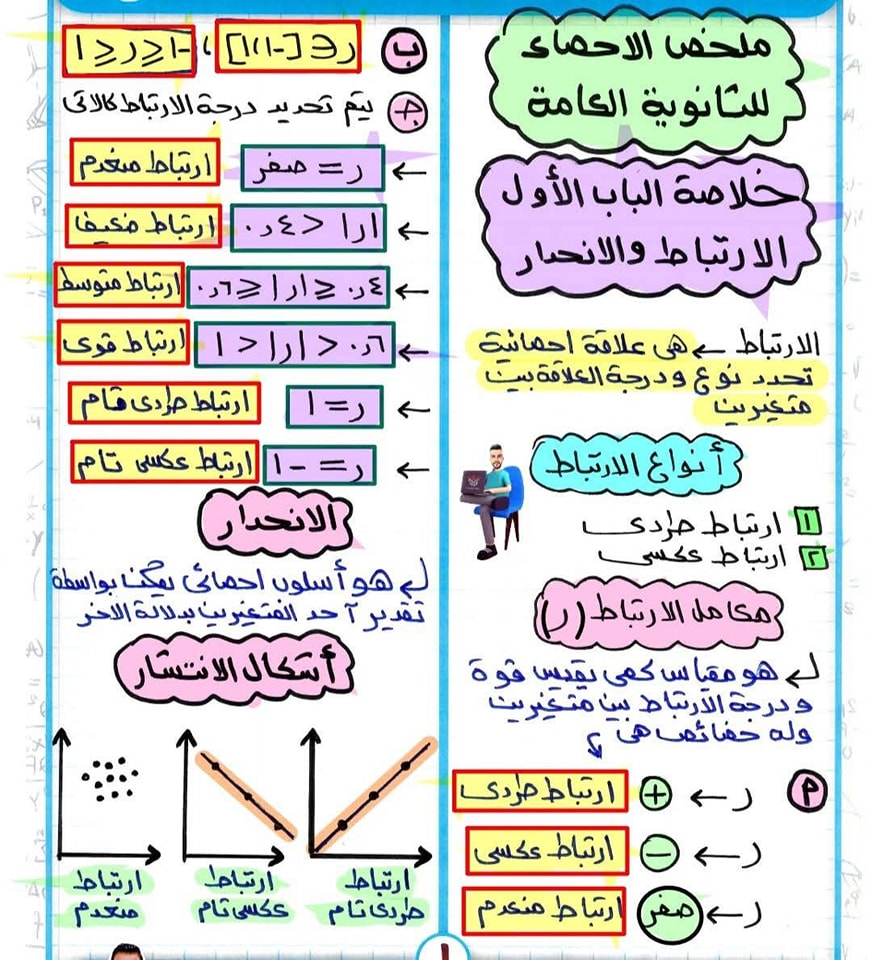 ملخص الاحصاء
للثانوية العامة
خلاصة الباب الأول
الارتباط والانحدار
الارتباط ← هى علاقة احصائية
تحدد نوع ودرجة العلاقة بين
متغيرين
أنواع الارتباط
١ ارتباط طردى
٢ ارتباط عكسى
معامل الارتباط (ر)
هو مقياس كمى يقيس قوة
ودرجة الارتباط بين متغيرين
وله خصائص هى
م ر ← + ارتباط طردى
ر ← − ارتباط عكسى
ر ← صفر ارتباط منعدم
ب ر ∈ [-١،١] ، -١ ≤ ر ≤ ١
جـ يتم تحديد درجة الارتباط كالاتى
← ر = صفر ارتباط منعدم
← |ر| < ٤ر٠ ارتباط ضعيف
← ٤ر٠ ≤ |ر| ≤ ٦ر٠ ارتباط متوسط
← ٦ر٠ < |ر| < ١ ارتباط قوى
← ر = ١ ارتباط طردى تام
← ر = -١ ارتباط عكسى تام
الانحدار
هو أسلوب احصائى يمكن بواسطة
تقدير أحد المتغيرين بدلالة الاخر
أشكال الانتشار
ارتباط
طردى تام
ارتباط
عكسى تام
ارتباط
منعدم
١